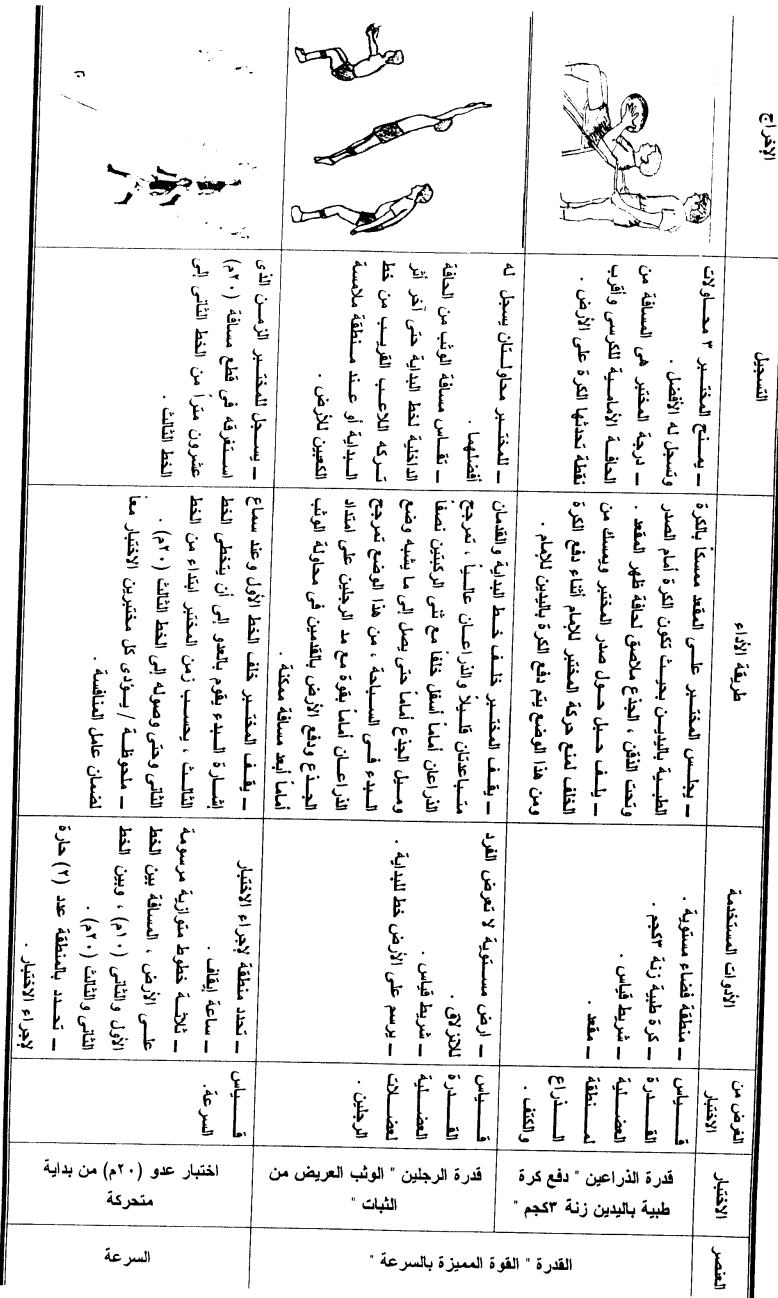 العنصر
الاختبار
الغرض من
الاختبار
الأدوات المستخدمة
طريقة الأداء
التسجيل
الإخراج
القدرة " القوة المميزة بالسرعة "
قدرة الذراعين " دفع كرة
طبية باليدين زنة ٣كجم "
قـــيـــاس
القـــدرة
العضـــلية
لمـــنطقة
الـــذراع
والكتف .
ــ منطقة فضاء مستوية .
ــ كرة طبية زنة ٣كجم .
ــ شريط قياس .
ــ مقعد .
ــ يجلس المختبر على المقعد ممسكاً بالكرة
الطبية باليدين بحيث تكون الكرة أمام الصدر
وتحت الذقن ، الجذع ملاصق لحافة ظهر المقعد .
ــ يلف حبل حول صدر المختبر ويمسك من
الخلف لمنع حركة المختبر للإمام أثناء دفع الكرة
ومن هذا الوضع يتم دفع الكرة باليدين للإمام .
ــ يمنح المختبر ٣ محاولات
وتسجل له الأفضل .
ــ درجة المختبر هى المسافة من
الحافة الأمامية للكرسى وأقرب
نقطة تحدثها الكرة على الأرض .
قدرة الرجلين " الوثب العريض من
الثبات "
قـــيـــاس
القـــدرة
العضـــلية
لعضـــلات
الرجلين .
ــ ارض مستوية لا تعرض الفرد
للانزلاق .
ــ شريط قياس .
ــ يرسم على الأرض خط للبداية .
ــ يقف المختبر خلف خط البداية والقدمان
متباعدتان قليلاً والذراعان عالياً ، تمرجح
الذراعان أماماً أسفل خلفاً مع ثنى الركبتين نصفاً
وميل الجذع أماماً حتى يصل إلى ما يشبه وضع
البدء فى السباحة ، من هذا الوضع تمرجح
الذراعان أماماً بقوة مع مد الرجلين على امتداد
الجذع ودفع الأرض بالقدمين فى محاولة الوثب
أماماً أبعد مسافة ممكنة .
ــ للمختبر محاولتان يسجل له
أفضلهما .
ــ تقاس مسافة الوثب من الحافة
الداخلية لخط البداية حتى آخر أثر
تركه اللاعب القريب من خط
البداية أو عند منطقة ملامسة
الكعبين للأرض .
السرعة
اختبار عدو (٢٠م) من بداية
متحركة
قـــيـــاس
السرعة.
ــ تحدد منطقة لإجراء الاختبار
ــ ساعة إيقاف .
ــ ثلاثة خطوط متوازية مرسومة
على الأرض ، المسافة بين الخط
الأول والثانى (١٠م) ، وبين الخط
الثانى والثالث (٢٠م) .
ــ تحدد بالمنطقة عدد (٢) حارة
لإجراء الاختبار .
ــ يقف المختبر خلف الخط الأول وعند سماع
إشارة البدء يقوم بالعدو إلى أن يتخطى الخط
الثالث ، يحسب زمن المختبر ابتداء من الخط
الثانى وحتى وصوله إلى الخط الثالث (٢٠م) .
ــ ملحوظة / يؤدى كل مختبرين الاختبار معاً
لضمان عامل المنافسة .
ــ يسجل للمختبر الزمن الذى
استغرقه فى قطع مسافة (٢٠م)
عشرون متراً من الخط الثانى إلى
الخط الثالث .